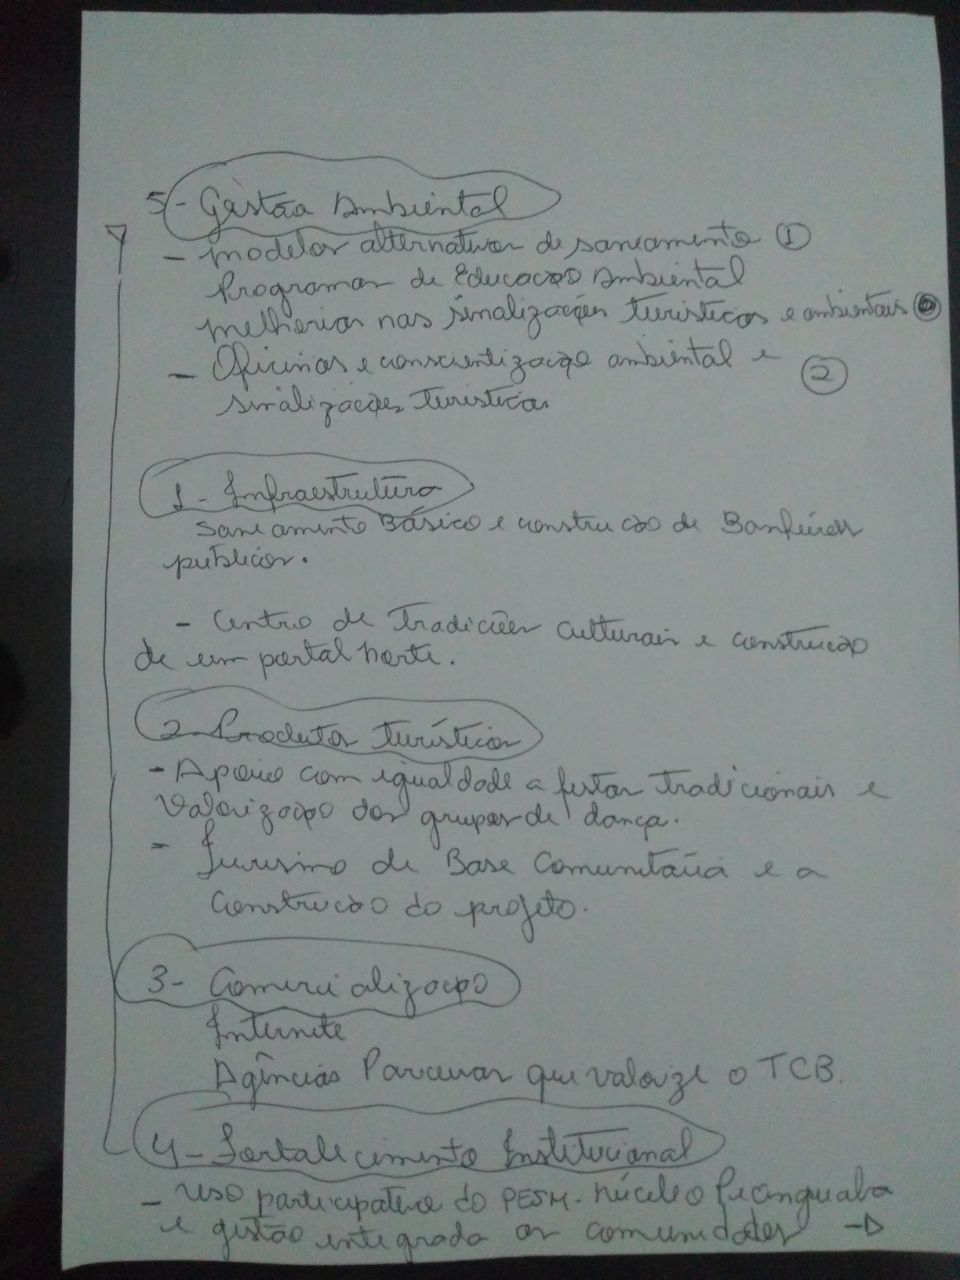 5 - Gestão Ambiental
- modelos alternativos de saneamento 1
Programas de Educação Ambiental
melhorias nas sinalizações turisticas e ambientais
- Oficinas e conscientização ambiental e 2
sinalizações turisticas
1 - Infraestrutura
Saneamento Básico e construcão de Banheiros
publicos.
- Centro de Tradicões culturais e construcão
de um portal norte.
2 - Produtos turísticos
- Apoio com igualdade a festas tradicionais e
Valorização dos grupos de dança.
- Turismo de Base Comunitária e a
Construcão do projeto.
3 - Comercialização
Internete
Agências Parceiras que valorize o TCB.
4 - Fortalecimento Institucional
- uso participativo do PESM - núcleo Picinguaba
e gestão integrada as comunidades →